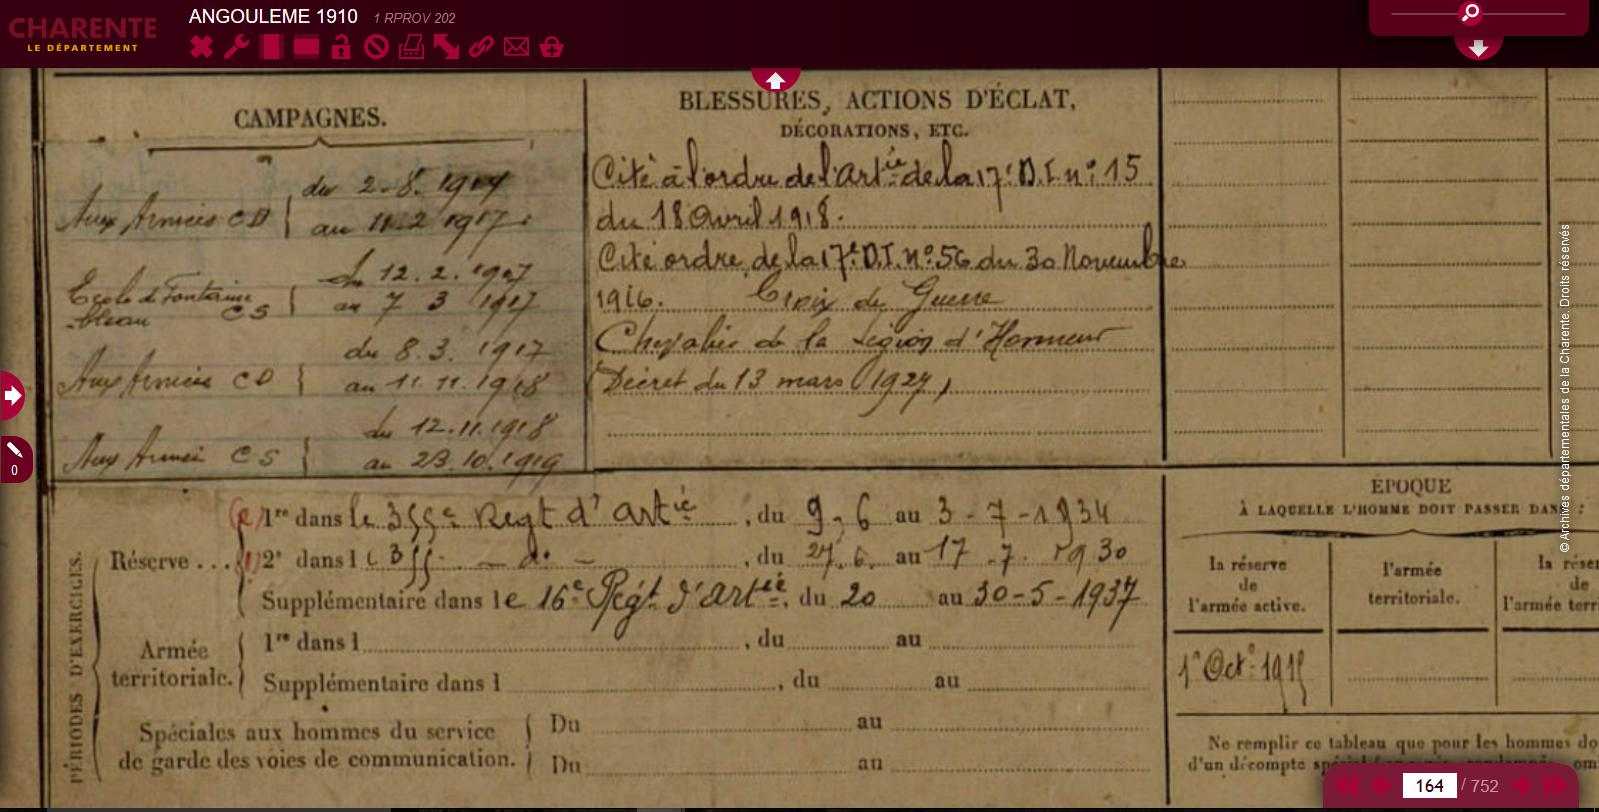 CHARENTE
LE DÉPARTEMENT
ANGOULEME 1910 1 RPROV 202
CAMPAGNES.
Aux Armées CD { du 2.8.1914
au 11.2 1917.
Ecole de Fontaine
bleau CS { du 12.2.1917
au 7 3 1917
Aux Armées CD { du 8.3.1917
au 11.11.1918
Aux Armées CS { du 12.11.1918
au 23.10.1919
BLESSURES, ACTIONS D'ÉCLAT,
DÉCORATIONS, ETC.
Cité à l'ordre de l'Artie de la 17e D.I. n° 15
du 18 Avril 1918.
Cité ordre de la 17e D.I. n° 56 du 30 Novembre
1916. Croix de Guerre
Chevalier de la Légion d'Honneur
(Décret du 13 mars 1927)
PÉRIODES D'EXERCICES.
Réserve ...
(2) 1re dans le 355e Regt d'Artie, du 9.6 au 3-7-1934
(1) 2e dans l e 355 - do -, du 27.6. au 17.7.1930
Supplémentaire dans le 16e Régt d'Artie, du 20 au 30-5-1937
Armée
territoriale.
1re dans l , du au
Supplémentaire dans l , du au
Spéciales aux hommes du service
de garde des voies de communication.
Du au
Du au
ÉPOQUE
À LAQUELLE L'HOMME DOIT PASSER DANS :
la réserve
de
l'armée active.
l'armée
territoriale.
la rése
de
l'armée terr
1er Octe 1915
Ne remplir ce tableau que pour les hommes do
d'un décompte
© Archives départementales de la Charente. Droits réservés
0
164 / 752